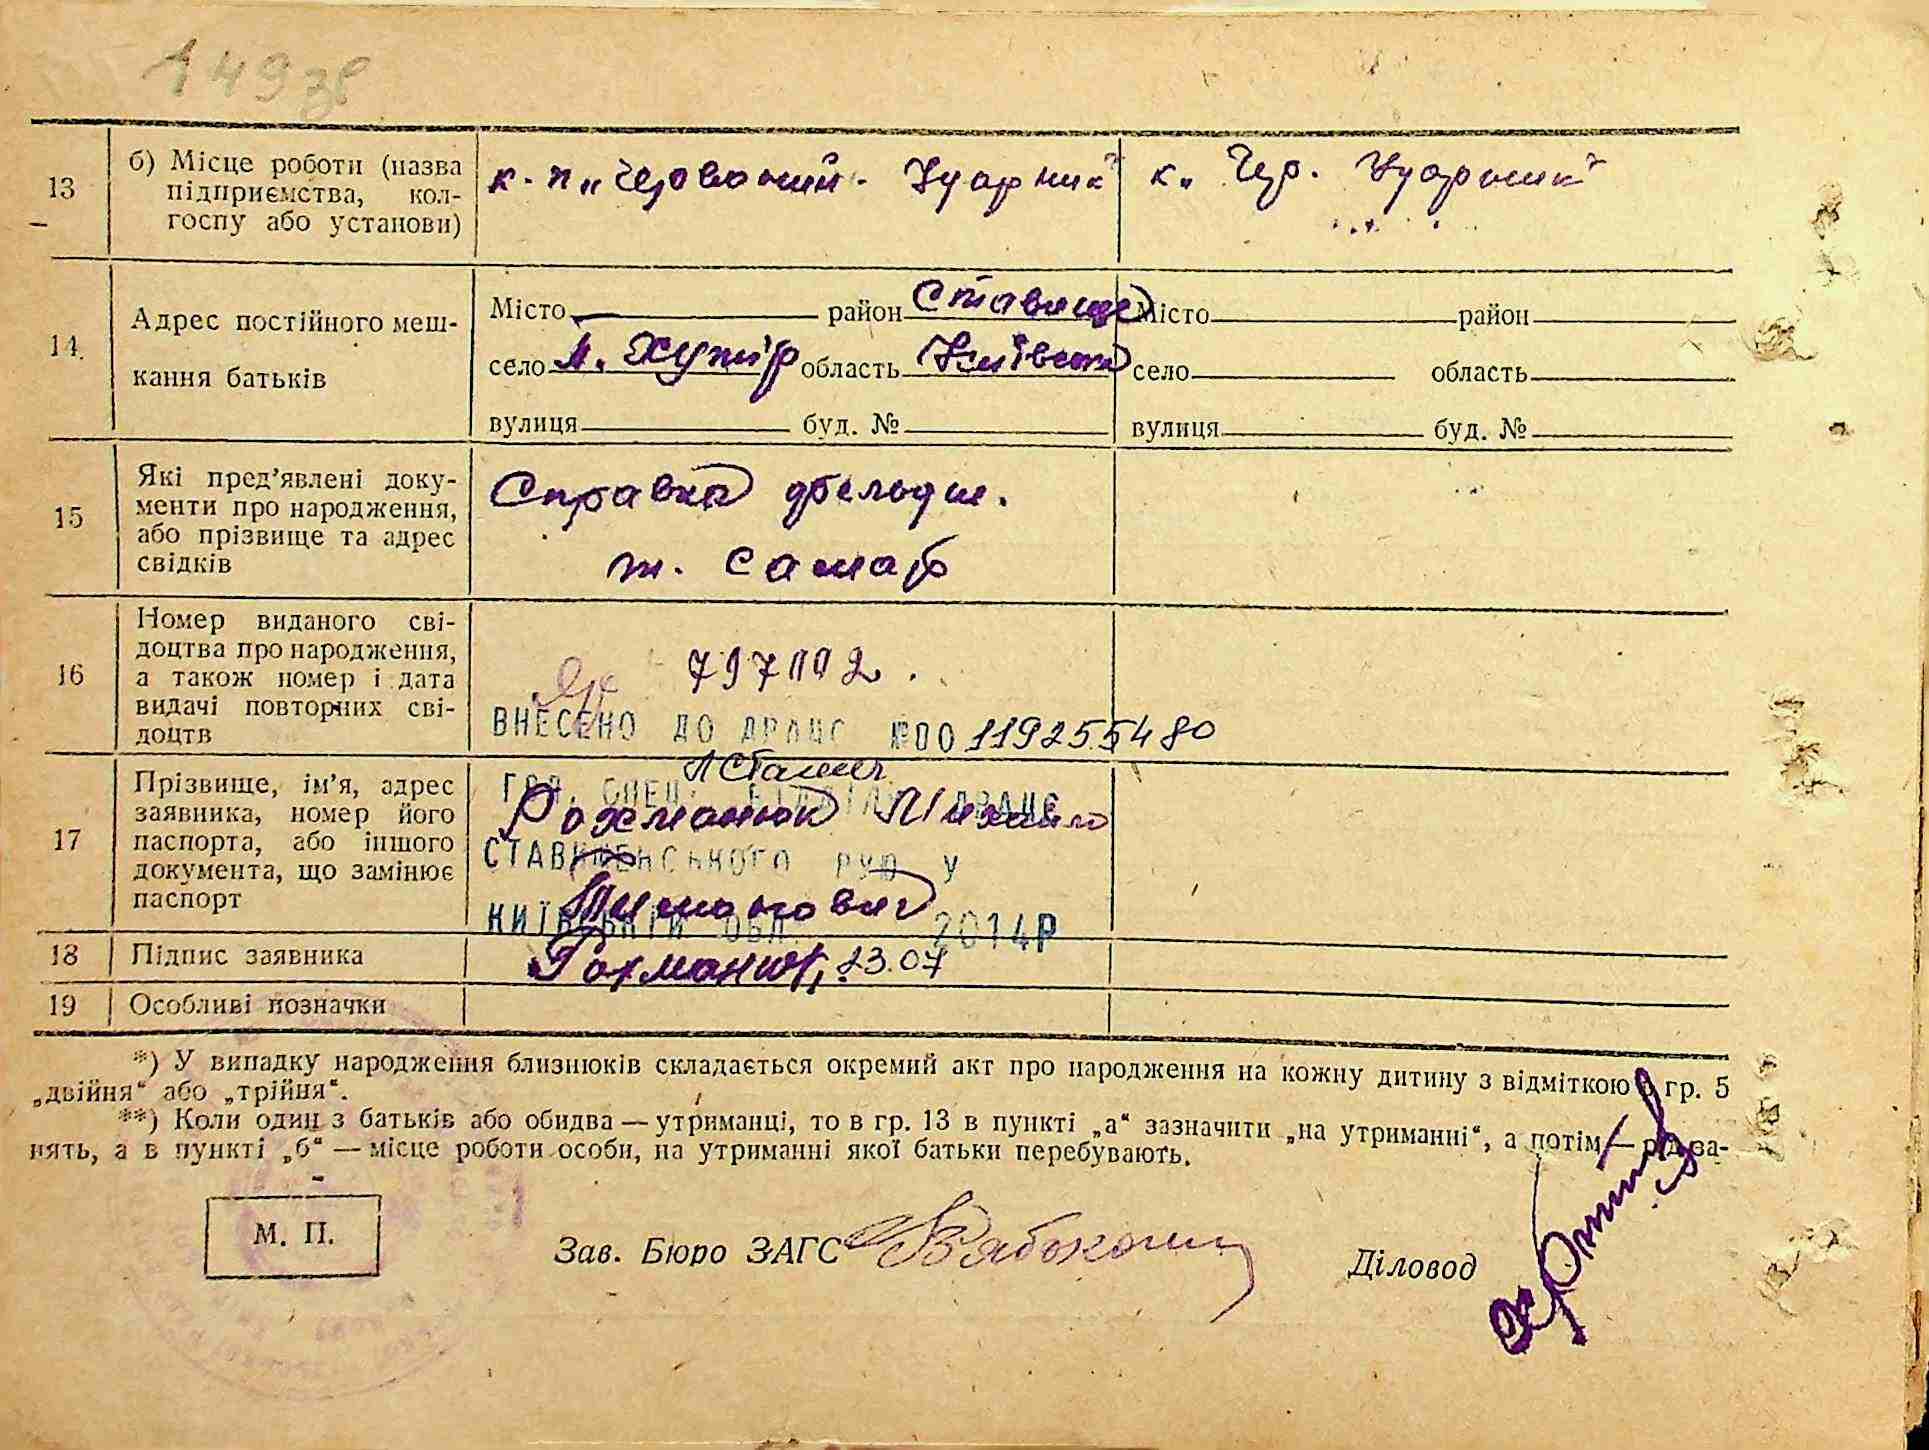 149
13
б) Місце роботи (назва
підприємства, кол-
госпу або установи)
к-п „Червоний Ударник“
к. „Чер. Ударник“
14
Адрес постійного меш-
кання батьків
Місто район Ставище
село М. Хутір область Київська
вулиця буд. №
Місто район
село область
вулиця буд. №
15
Які пред’явлені доку-
менти про народження,
або прізвище та адрес
свідків
Справка фельдш.
т.
16
Номер виданого сві-
доцтва про народження,
а також номер і дата
видачі повторних сві-
доцтв
ВНЕСЕНО ДО ДРАЦС №00119255480
17
Прізвище, ім’я, адрес
заявника, номер його
паспорта, або іншого
документа, що замінює
паспорт
ГРО. СПЕЦ. ВІДДІЛУ ДРАЦС
Рохманюк Михайло
СТАВИЩЕНСЬКОГО РУЮ У
КИЇВСЬКІЙ ОБЛ. 2014Р
18
Підпис заявника
Рохманюк 23.07
19
Особливі позначки
*) У випадку народження близнюків складається окремий акт про народження на кожну дитину з відміткою в гр. 5
„двійня“ або „трійня“.
**) Коли один з батьків або обидва — утриманці, то в гр. 13 в пункті „а“ зазначити „на утриманні“, а потім — рід за-
нять, а в пункті „б“ — місце роботи особи, на утриманні якої батьки перебувають.
М. П.
Зав. Бюро ЗАГС
Діловод